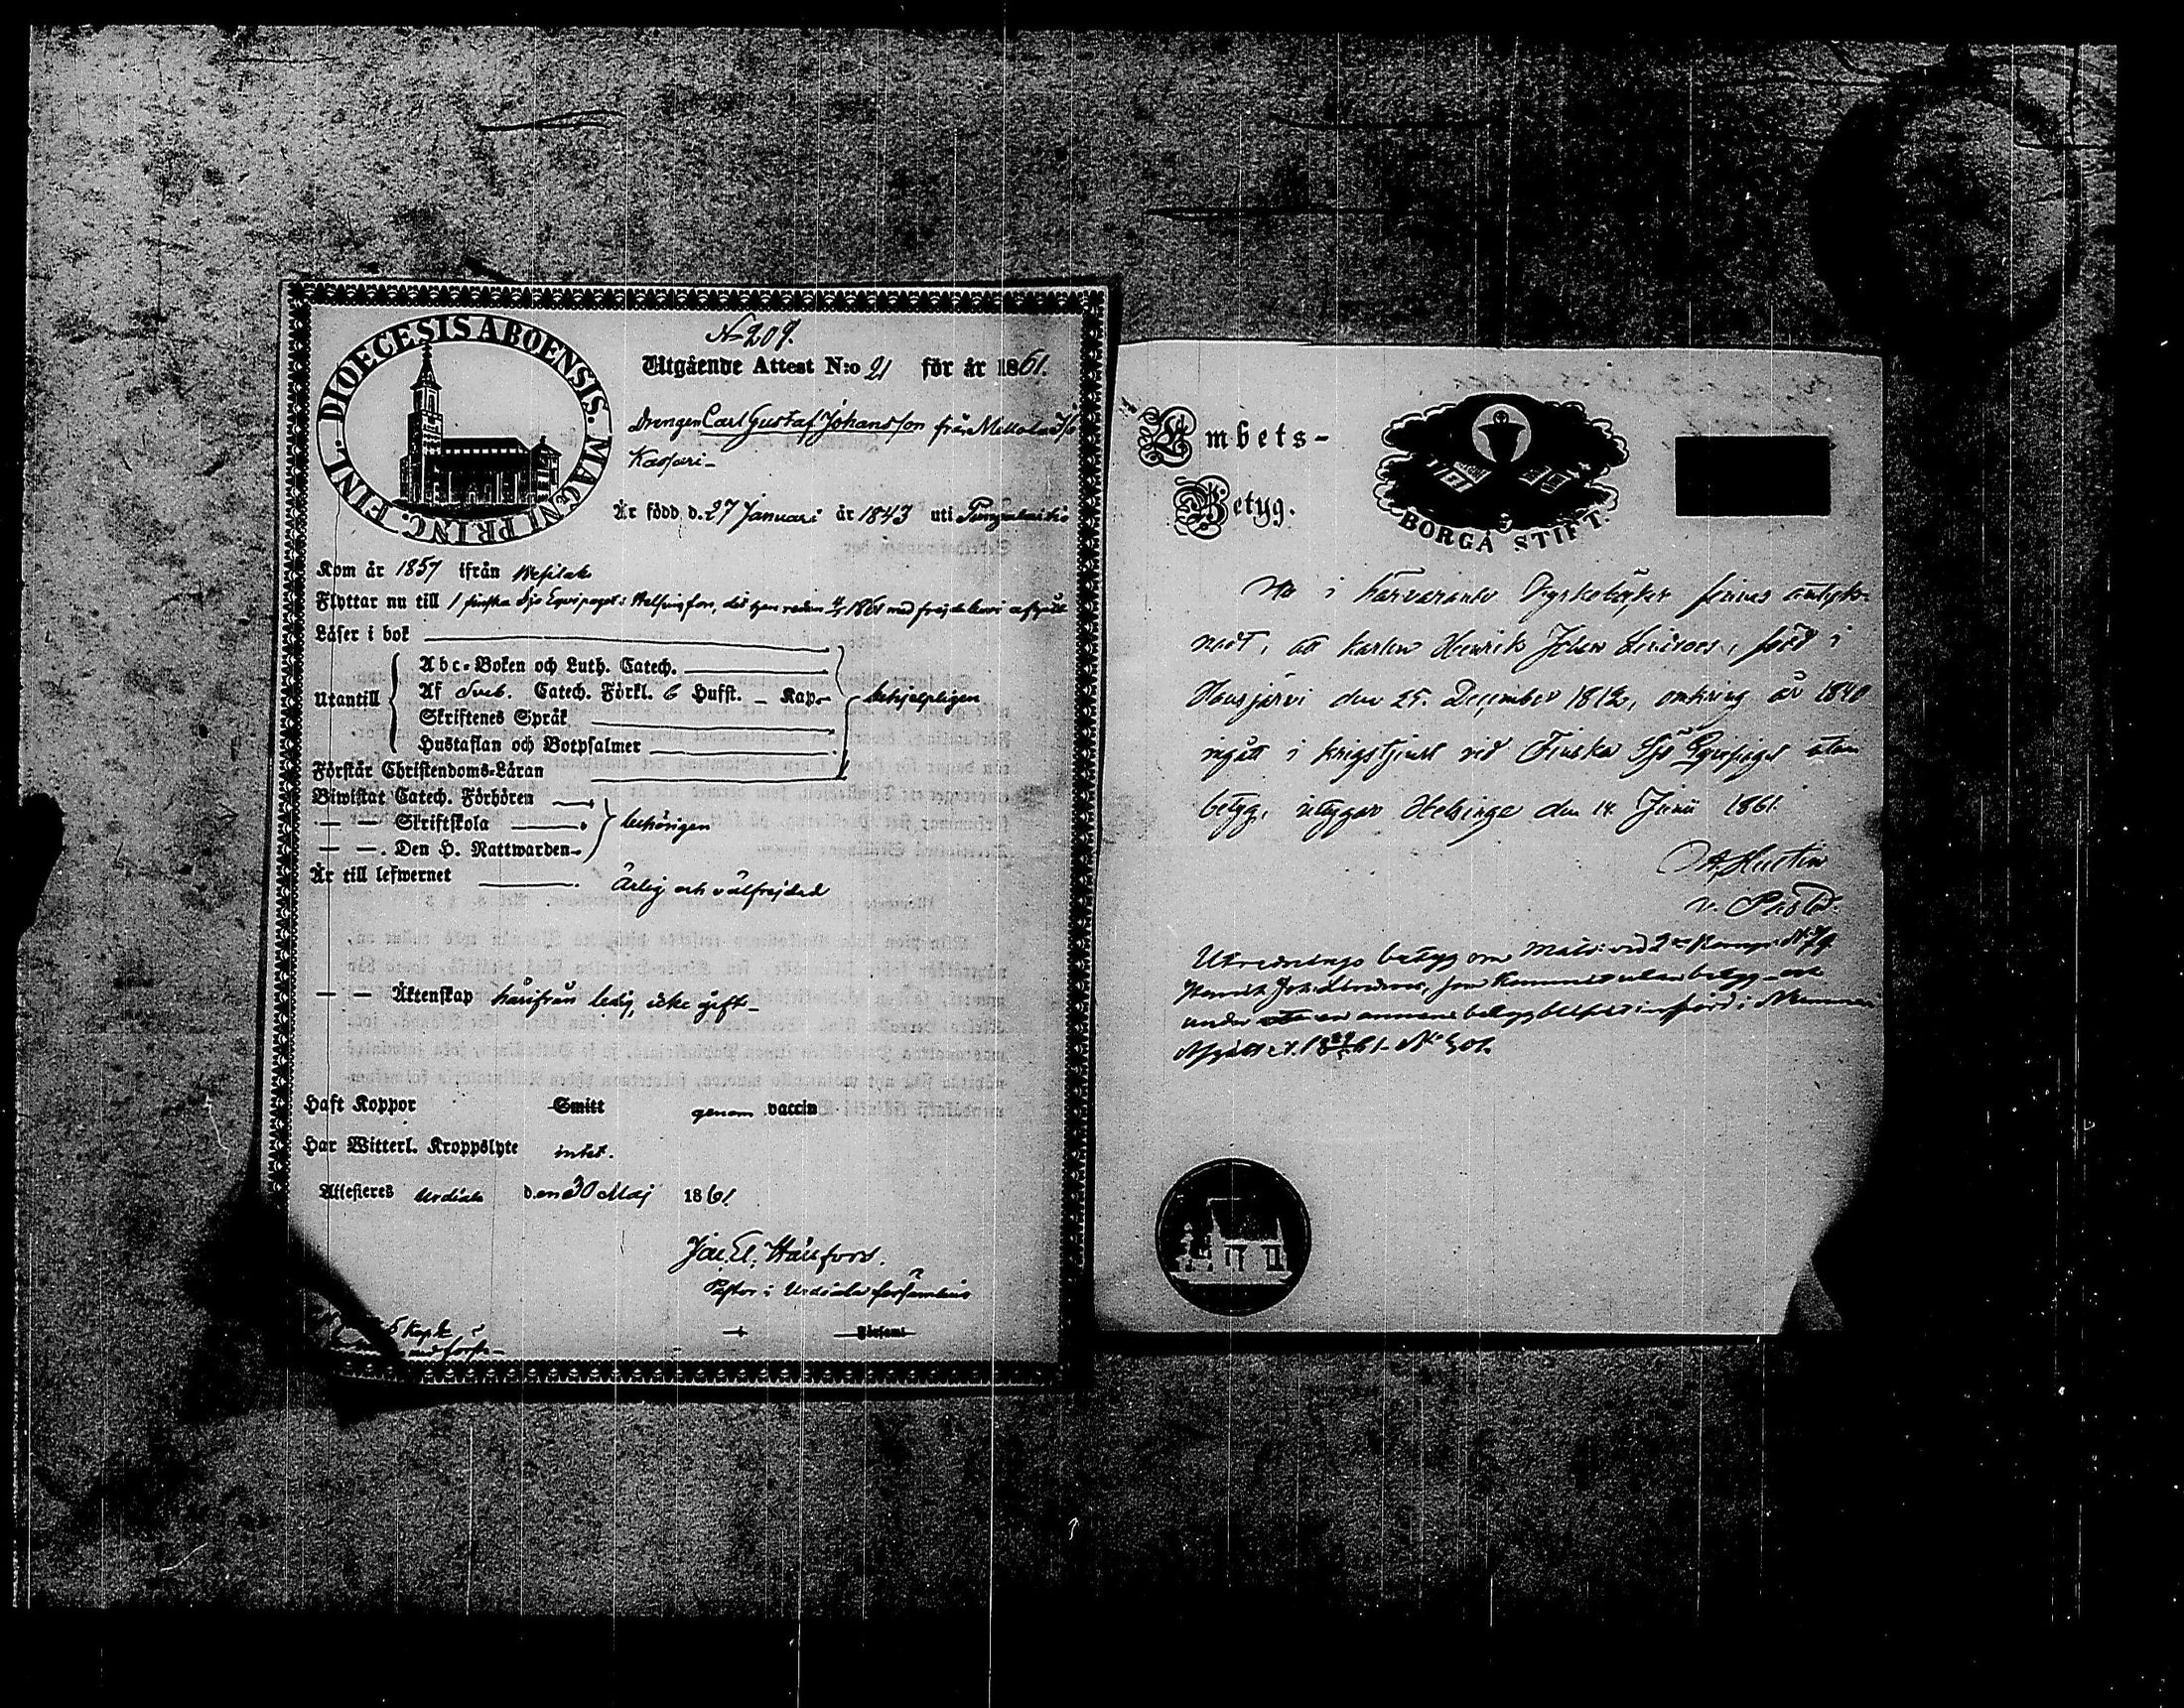 DIOECESIS ABOENSIS. MAGNI PRINC. FINL.
N 209.
Utgående Attest N:o 21 för år 1861.
Drengen Carl Gustaf Johansson från Mellola
Kassari
Är född d. 27 Januari år 1843 uti Pungalaitio
Kom år 1857 ifrån Wesilaks
Flyttar nu till 1 finska Sjö Equipaget i Helsingfors, dit han redan 1861 med afgått
Läser i bok
Utantill
Abc-Boken och Luth. Catech.
Af Sveb. Catech. Förkl. 6 Hufst. Kap.
behjelpligen
Skriftenes Språk
Hustaflan och Botpsalmer
Förstår Christendoms-Läran
Biwistat Catech. Förhören
— — Skriftskola
behörigen
— — Den H. Nattwarden
Är till lefwernet
Ärlig och välfrejdad
— — Äktenskap härifrån ledig, icke gift
Haft Koppor Smitt genom vaccin
Har Witterl. Kroppslyte intet.
Attesteres Urdiala den 30 Maj 1861
Joh. El. Hällfors.
Pastor i Urdiala församling
Församl
5 Kop.
Embets-
Betyg.
BORGÅ STIFT.
Att i härvarande Kyrkoböcker finnes anteck-
nadt, att karlen Henrik Johan Lindroos, född i
Hausjärvi den 25. December 1812, omkring år 1840
ingått i krigstjenst vid Finska Sjö Equipaget utan
betyg, intygar Helsinge den 14. Junii 1861.
A. Hustin
v. Past.
Utrednings betyg om Matr: vid 2 Komp: N 79
Henrik Joh. Lindroos, som kommit utan betyg och
under en annans betyg blifvit införd i Nummer
1861 N 301.